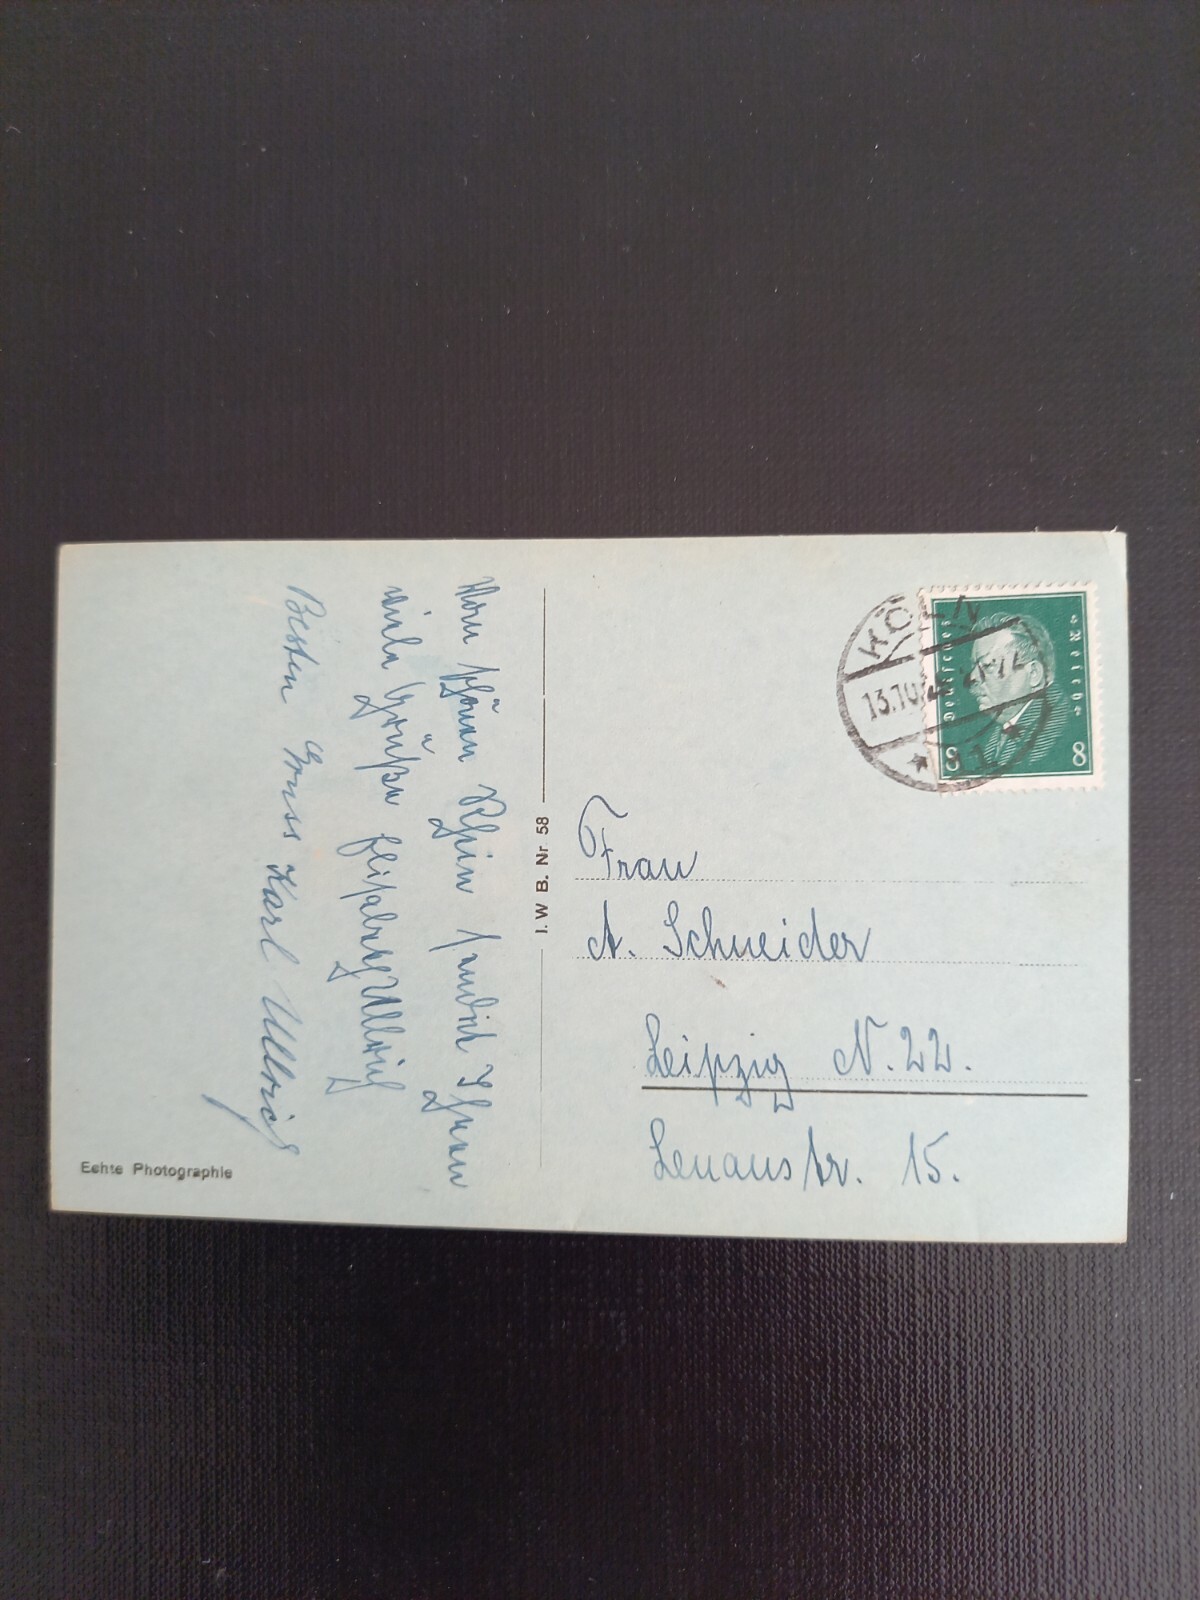 Vom schönen Rhein sendet Ihnen
viele Grüße Elisabeth Ullrich
Besten Gruss Karl Ullrich
Echte Photographie
J. W. B. Nr 58
KÖLN
13.10.
* *
Deutsches Reich
8 8
Frau
A. Schneider
Leipzig N. 22.
Lenaustr. 15.